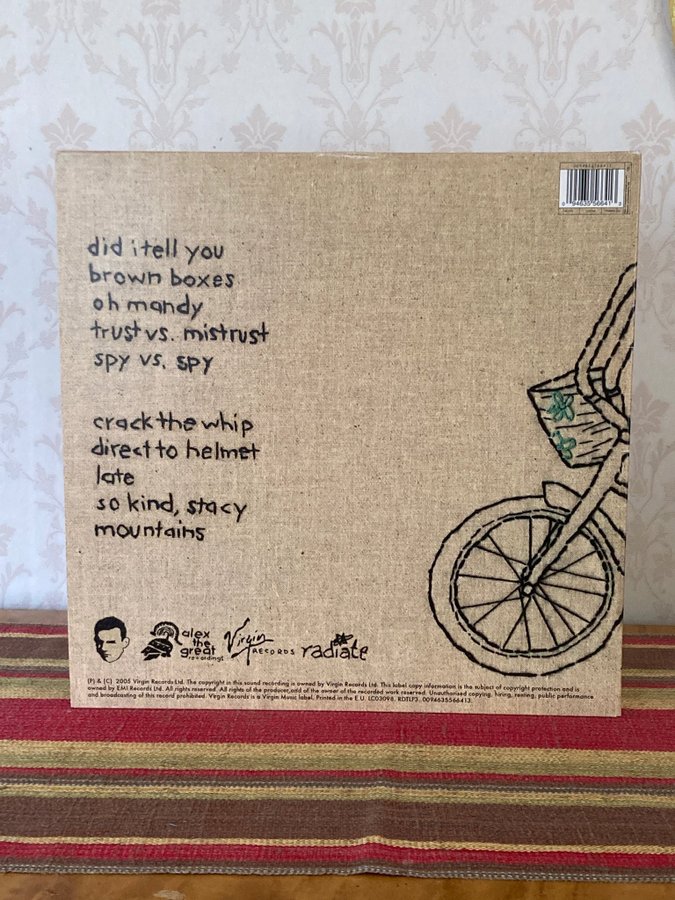 0 94635 56641 3
did i tell you
brown boxes
oh mandy
trust vs. mistrust
spy vs. spy
crack the whip
direct to helmet
late
so kind, stacy
mountains
alex
the
great
recordings
Virgin
RECORDS
radiate
(P) & (C) 2005 Virgin Records Ltd. The copyright in this sound recording is owned by Virgin Records Ltd. This label copy information is the subject of copyright protection and is
owned by EMI Records Ltd. All rights reserved. All rights of the producer, and of the owner of the recorded work reserved. Unauthorised copying, hiring, renting, public performance
and broadcasting of this record prohibited. Virgin Records is a Virgin Music label. Printed in the E.U. LC03098. RDTLP3. 0094635566413.